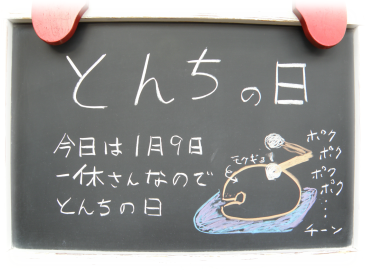 とんちの日
今日は1月9日
一休さんなので
とんちの日
モクギョ
ポク
ポク
ポク
ポク
⋮
チーン